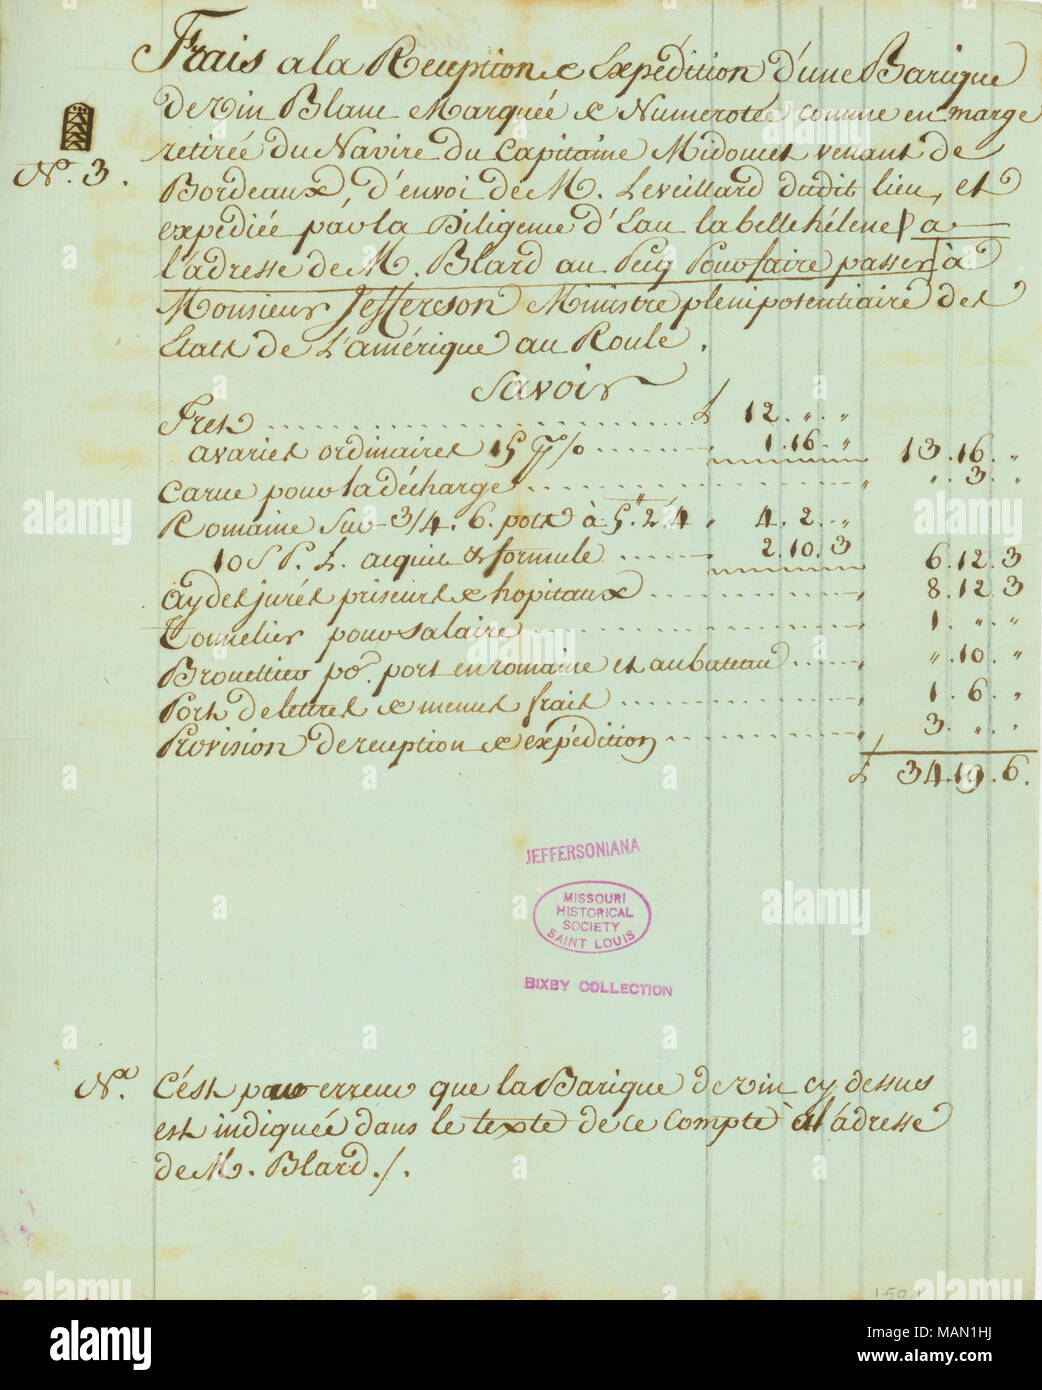 Frais a la Reception & Expédition d'une Barique
de vin Blanc Marquée & Numerotée comme en marge
N°. 3. retirée du Navire du Capitaine Midoucet venant de
Bordeaux, d'envoi de M. Leveillard dudit lieu, et
expédiée par la Diligence d'Eau la belle hélene a
l'adresse de M. Blard au Pecq Pour faire passer à
Monsieur Jefferson Ministre plenipotentiaire des
Etats de L'amérique au Roule.
Savoir
Fret £ 12. " "
avaries ordinaires 15 p% 1. 16. " 13. 16. "
Carue pour la décharge " 3. "
Romaine sur 3/4. 6. pots à 5" 2. 4 4. 2. "
10 S P. £. acquit & formule 2. 10. 3 6. 12. 3
aydes jurés priseurs & hopitaux 8. 12. 3
Tonnelier pour salaire 1. " "
Brouettier po. port en romaine et au bateau " 10. "
Port de lettres & menus frais 1. 6. "
Provision de reception & expédition 3. " "
£ 34. 19. 6.
JEFFERSONIANA
MISSOURI
HISTORICAL
SOCIETY
SAINT LOUIS
BIXBY COLLECTION
Na. C'est par erreur que la Barique de vin cy dessus
est indiquée dans le texte de ce Compte à l'adresse
de M. Blard ./.
alamy
Image ID: MAN1HJ
www.alamy.com